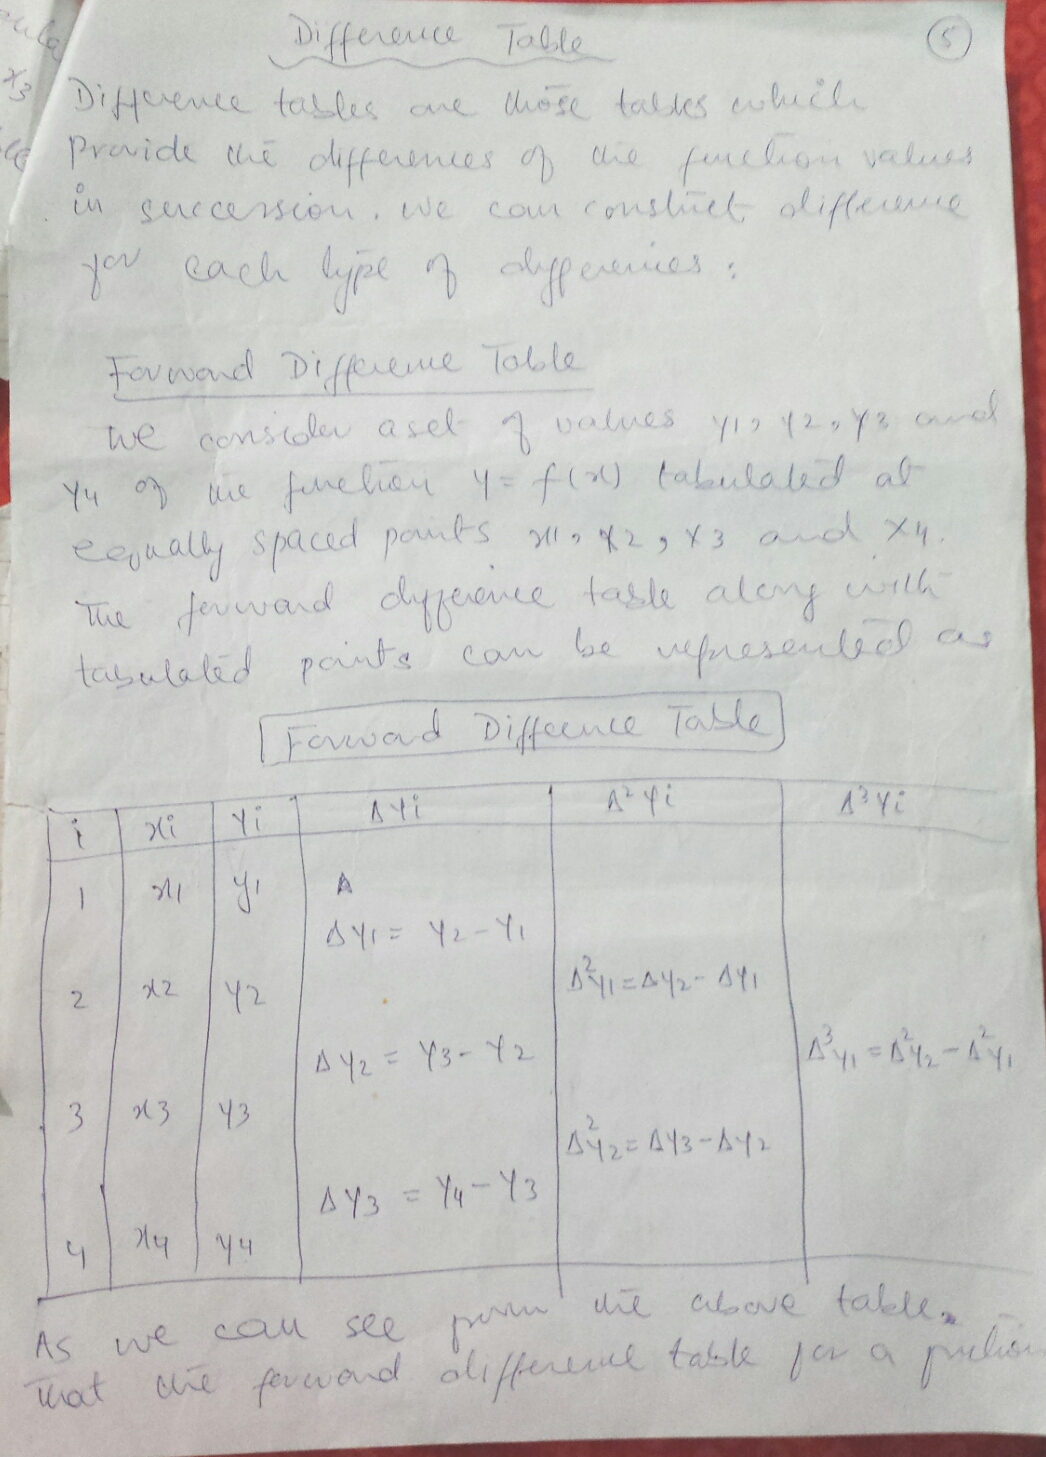 Difference Table
5
Difference tables are those tables which
Provide the differences of the function values
in succession. we can construct difference
for each type of differences:
Forward Difference Table
We consider a set of values y1, y2, y3 and
y4 of the function y = f(x) tabulated at
equally spaced points x1, x2, x3 and x4.
The forward difference table along with
tabulated points can be represented as
Forward Difference Table
i xi yi Δyi Δ²yi Δ³yi
1 x1 y1 Δ
Δy1 = y2 - y1
2 x2 y2 Δ²y1 = Δy2 - Δy1
Δy2 = y3 - y2 Δ³y1 = Δ²y2 - Δ²y1
3 x3 y3
Δ²y2 = Δy3 - Δy2
Δy3 = y4 - y3
4 x4 y4
As we can see from the above table.
That the forward difference table for a